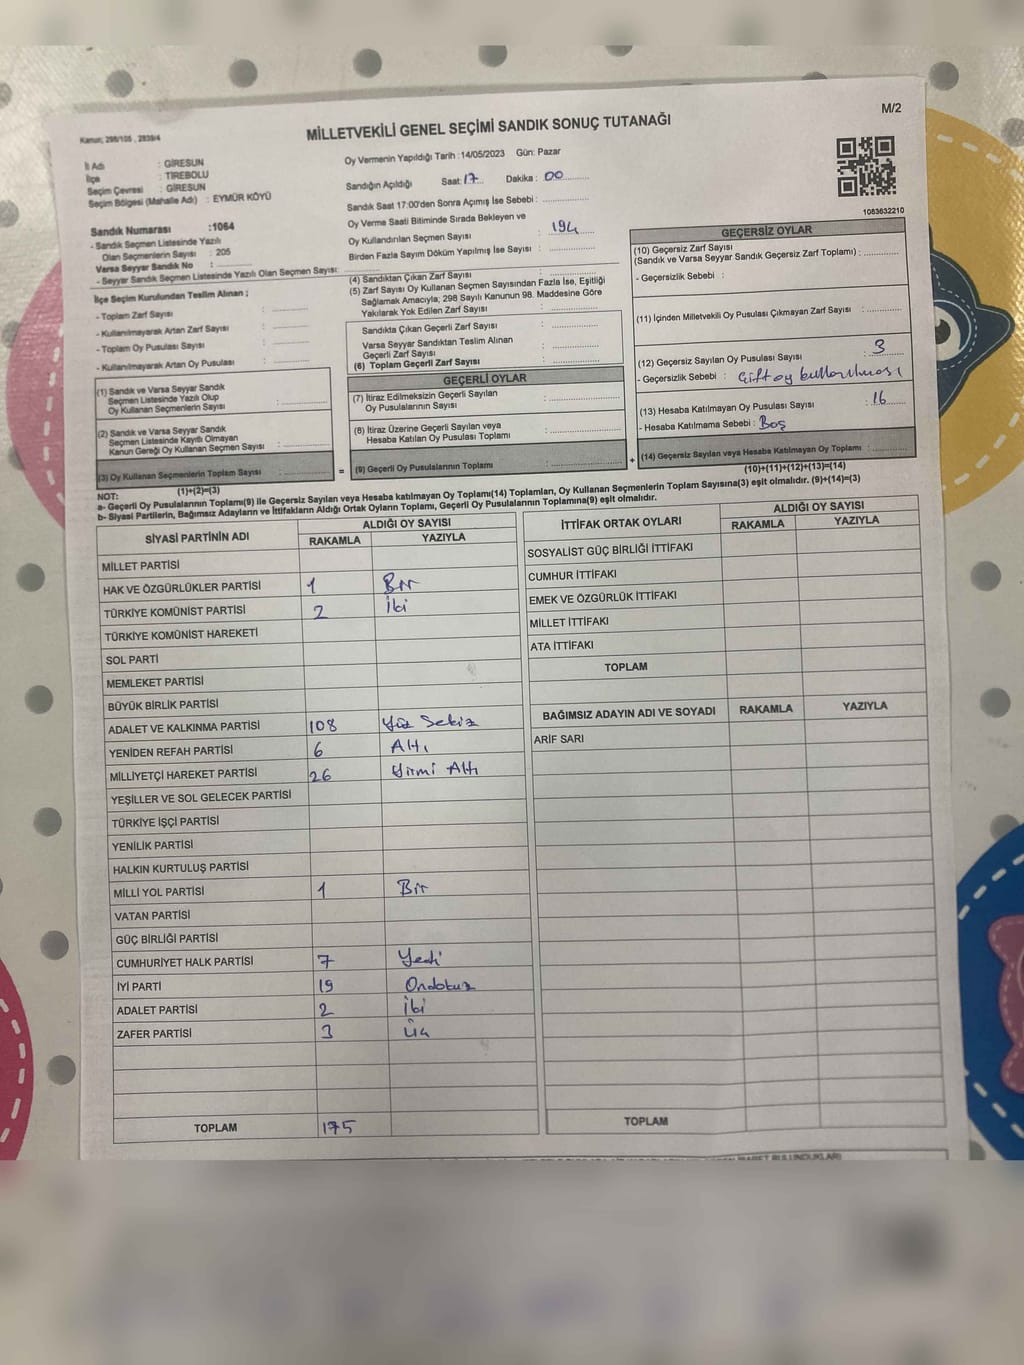 M/2
Kanun; 298/105 , 2839/4
MİLLETVEKİLİ GENEL SEÇİMİ SANDIK SONUÇ TUTANAĞI
İl Adı : GİRESUN
İlçe : TİREBOLU
Seçim Çevresi : GİRESUN
Seçim Bölgesi (Mahalle Adı) : EYMÜR KÖYÜ
Sandık Numarası :1064
- Sandık Seçmen Listesinde Yazılı
Olan Seçmenlerin Sayısı : 205
Varsa Seyyar Sandık No :
- Seyyar Sandık Seçmen Listesinde Yazılı Olan Seçmen Sayısı:
Oy Vermenin Yapıldığı Tarih :14/05/2023 Gün: Pazar
Sandığın Açıldığı Saat: 17 Dakika : 00
Sandık Saat 17:00'den Sonra Açımış İse Sebebi :
Oy Verme Saati Bitiminde Sırada Bekleyen ve
Oy Kullandırılan Seçmen Sayısı : 194
Birden Fazla Sayım Döküm Yapılmış İse Sayısı :
1083632210
İlçe Seçim Kurulundan Teslim Alınan ;
- Toplam Zarf Sayısı :
- Kullanılmayarak Artan Zarf Sayısı :
- Toplam Oy Pusulası Sayısı :
- Kullanılmayarak Artan Oy Pusulası :
(1) Sandık ve Varsa Seyyar Sandık
Seçmen Listesinde Yazılı Olup
Oy Kullanan Seçmenlerin Sayısı :
(2) Sandık ve Varsa Seyyar Sandık
Seçmen Listesinde Kayıtlı Olmayan
Kanun Gereği Oy Kullanan Seçmen Sayısı :
(3) Oy Kullanan Seçmenlerin Toplam Sayısı :
(1)+(2)=(3)
(4) Sandıktan Çıkan Zarf Sayısı :
(5) Zarf Sayısı Oy Kullanan Seçmen Sayısından Fazla İse, Eşitliği
Sağlamak Amacıyla; 298 Sayılı Kanunun 98. Maddesine Göre
Yakılarak Yok Edilen Zarf Sayısı :
Sandıkta Çıkan Geçerli Zarf Sayısı :
Varsa Seyyar Sandıktan Teslim Alınan
Geçerli Zarf Sayısı :
(6) Toplam Geçerli Zarf Sayısı :
GEÇERLİ OYLAR
(7) İtiraz Edilmeksizin Geçerli Sayılan
Oy Pusulalarının Sayısı :
(8) İtiraz Üzerine Geçerli Sayılan veya
Hesaba Katılan Oy Pusulası Toplamı :
= (9) Geçerli Oy Pusulalarının Toplamı : +
GEÇERSİZ OYLAR
(10) Geçersiz Zarf Sayısı
(Sandık ve Varsa Seyyar Sandık Geçersiz Zarf Toplamı) :
- Geçersizlik Sebebi :
(11) İçinden Milletvekili Oy Pusulası Çıkmayan Zarf Sayısı :
(12) Geçersiz Sayılan Oy Pusulası Sayısı : 3
- Geçersizlik Sebebi : Çift oy kullanılması
(13) Hesaba Katılmayan Oy Pusulası Sayısı : 16
- Hesaba Katılmama Sebebi : Boş
(14) Geçersiz Sayılan veya Hesaba Katılmayan Oy Toplamı :
(10)+(11)+(12)+(13)=(14)
NOT:
a- Geçerli Oy Pusulalarının Toplamı(9) ile Geçersiz Sayılan veya Hesaba katılmayan Oy Toplamı(14) Toplamları, Oy Kullanan Seçmenlerin Toplam Sayısına(3) eşit olmalıdır. (9)+(14)=(3)
b- Siyasi Partilerin, Bağımsız Adayların ve İttifakların Aldığı Ortak Oyların Toplamı, Geçerli Oy Pusulalarının Toplamına(9) eşit olmalıdır.
SİYASİ PARTİNİN ADI ALDIĞI OY SAYISI
RAKAMLA YAZIYLA
MİLLET PARTİSİ
HAK VE ÖZGÜRLÜKLER PARTİSİ 1 Bir
TÜRKİYE KOMÜNİST PARTİSİ 2 İki
TÜRKİYE KOMÜNİST HAREKETİ
SOL PARTİ
MEMLEKET PARTİSİ
BÜYÜK BİRLİK PARTİSİ
ADALET VE KALKINMA PARTİSİ 108 Yüz Sekiz
YENİDEN REFAH PARTİSİ 6 Altı
MİLLİYETÇİ HAREKET PARTİSİ 26 Yirmi Altı
YEŞİLLER VE SOL GELECEK PARTİSİ
TÜRKİYE İŞÇİ PARTİSİ
YENİLİK PARTİSİ
HALKIN KURTULUŞ PARTİSİ
MİLLİ YOL PARTİSİ 1 Bir
VATAN PARTİSİ
GÜÇ BİRLİĞİ PARTİSİ
CUMHURİYET HALK PARTİSİ 7 Yedi
İYİ PARTİ 19 Ondokuz
ADALET PARTİSİ 2 İki
ZAFER PARTİSİ 3 Üç
TOPLAM 175
İTTİFAK ORTAK OYLARI ALDIĞI OY SAYISI
RAKAMLA YAZIYLA
SOSYALİST GÜÇ BİRLİĞİ İTTİFAKI
CUMHUR İTTİFAKI
EMEK VE ÖZGÜRLÜK İTTİFAKI
MİLLET İTTİFAKI
ATA İTTİFAKI
TOPLAM
BAĞIMSIZ ADAYIN ADI VE SOYADI RAKAMLA YAZIYLA
ARİF SARI
TOPLAM